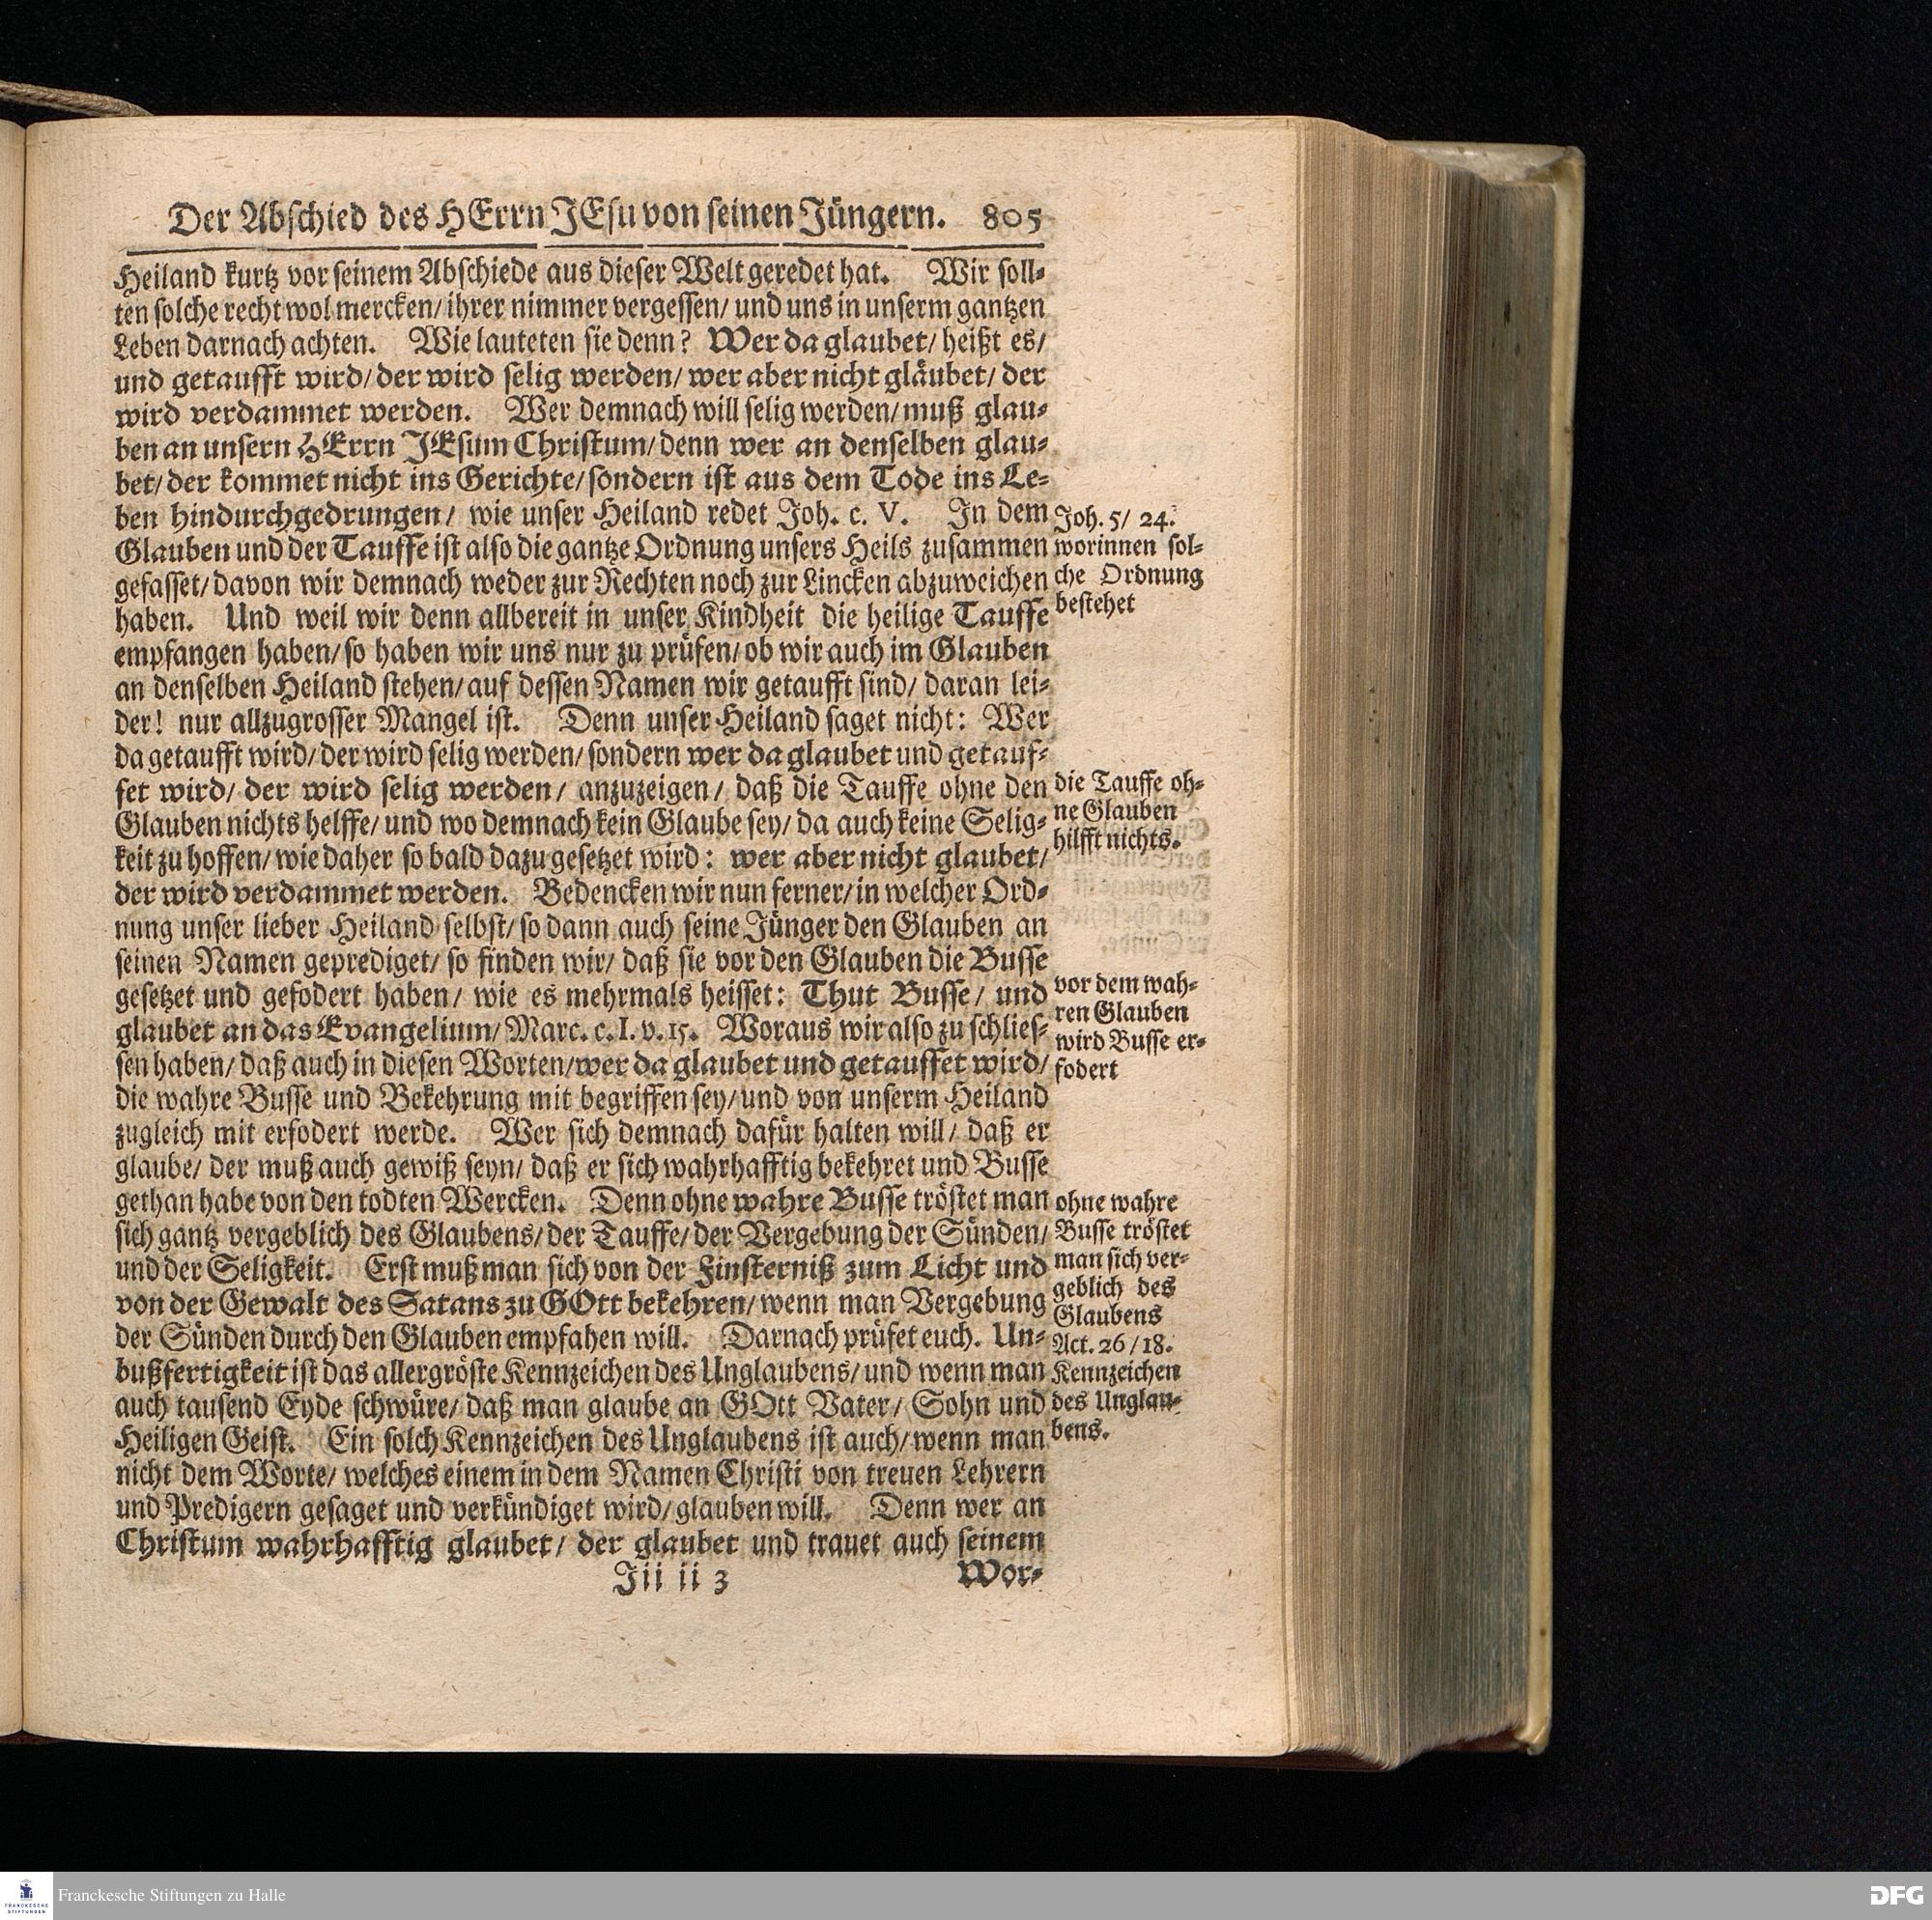 Der Abschied des HErrn JEsu von seinen Jüngern. 805
Heiland kurtz vor seinem Abschiede aus dieser Welt geredet hat. Wir soll-
ten solche recht wol mercken/ ihrer nimmer vergessen/ und uns in unserm gantzen
Leben darnach achten. Wie lauteten sie denn? Wer da glaubet/ heißt es/
und getaufft wird/ der wird selig werden/ wer aber nicht gläubet/ der
wird verdammet werden. Wer demnach will selig werden/ muß glau-
ben an unsern HErrn JEsum Christum/ denn wer an denselben glau-
bet/ der kommet nicht ins Gerichte/ sondern ist aus dem Tode ins Le-
ben hindurchgedrungen/ wie unser Heiland redet Joh. c. V. In dem
Glauben und der Tauffe ist also die gantze Ordnung unsers Heils zusammen
gefasset/ davon wir demnach weder zur Rechten noch zur Lincken abzuweichen
haben. Und weil wir denn allbereit in unser Kindheit die heilige Tauffe
empfangen haben/ so haben wir uns nur zu prüfen/ ob wir auch im Glauben
an denselben Heiland stehen/ auf dessen Namen wir getaufft sind/ daran lei-
der! nur allzugrosser Mangel ist. Denn unser Heiland saget nicht: Wer
da getaufft wird/ der wird selig werden/ sondern wer da glaubet und getauf-
fet wird/ der wird selig werden/ anzuzeigen/ daß die Tauffe ohne den
Glauben nichts helffe/ und wo demnach kein Glaube sey/ da auch keine Selig-
keit zu hoffen/ wie daher so bald dazu gesetzet wird: wer aber nicht glaubet/
der wird verdammet werden. Bedencken wir nun ferner/ in welcher Ord-
nung unser lieber Heiland selbst/ so dann auch seine Jünger den Glauben an
seinen Namen geprediget/ so finden wir/ daß sie vor den Glauben die Busse
gesetzet und gefodert haben/ wie es mehrmals heisset: Thut Busse/ und
glaubet an das Evangelium/ Marc. c. I. v. 15. Woraus wir also zu schlies-
sen haben/ daß auch in diesen Worten/ wer da glaubet und getauffet wird/
die wahre Busse und Bekehrung mit begriffen sey/ und von unserm Heiland
zugleich mit erfodert werde. Wer sich demnach dafür halten will/ daß er
glaube/ der muß auch gewiß seyn/ daß er sich wahrhafftig bekehret und Busse
gethan habe von den todten Wercken. Denn ohne wahre Busse tröstet man
sich gantz vergeblich des Glaubens/ der Tauffe/ der Vergebung der Sünden/
und der Seligkeit. Erst muß man sich von der Finsterniß zum Licht und
von der Gewalt des Satans zu GOtt bekehren/ wenn man Vergebung
der Sünden durch den Glauben empfahen will. Darnach prüfet euch. Un-
bußfertigkeit ist das allergröste Kennzeichen des Unglaubens/ und wenn man
auch tausend Eyde schwüre/ daß man glaube an GOtt Vater/ Sohn und
Heiligen Geist. Ein solch Kennzeichen des Unglaubens ist auch/ wenn man
nicht dem Worte/ welches einem in dem Namen Christi von treuen Lehrern
und Predigern gesaget und verkündiget wird/ glauben will. Denn wer an
Christum wahrhafftig glaubet/ der glaubet und trauet auch seinem
Jii ii 3 Wor-
Joh. 5/ 24.
worinnen sol-
che Ordnung
bestehet
die Tauffe oh-
ne Glauben
hilfft nichts.
vor dem wah-
ren Glauben
wird Busse er-
fodert
ohne wahre
Busse tröstet
man sich ver-
geblich des
Glaubens
Act. 26/ 18.
Kennzeichen
des Unglau-
bens.
FRANCKESCHE
STIFTUNGEN
Franckesche Stiftungen zu Halle
DFG